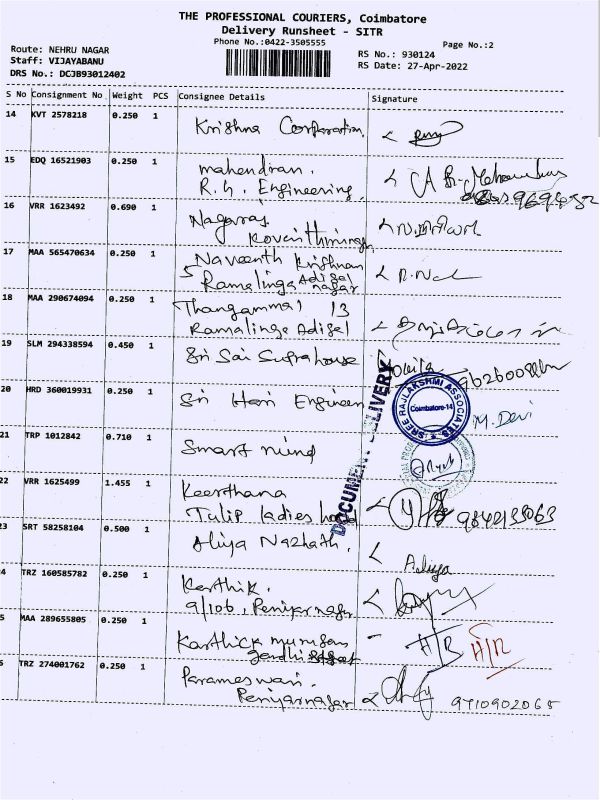 THE PROFESSIONAL COURIERS, Coimbatore
Delivery Runsheet - SITR
Phone No.:0422-3505555
Page No.:2
Route: NEHRU NAGAR
Staff: VIJAYABANU
DRS No.: DCJB93012402
RS No.: 930124
RS Date: 27-Apr-2022
S No Consignment No Weight PCS Consignee Details Signature
14 KVT 2578218 0.250 1
Krishna Corporation
15 EDQ 16521903 0.250 1
mahendran.
R.G. Engineering
16 VRR 1623492 0.690 1
Nagaraj
17 MAA 565470634 0.250 1
Naveenth Krishnan
5 Ramalinga Adigal nagar
18 MAA 290674094 0.250 1
Thangammal 13
Ramalinga Adigal
19 SLM 294338594 0.450 1
Sri Sai Suprahouse
20 HRD 360019931 0.250 1
Sri Hari Engineer
M. Devi
DOCUMENT DELIVERY
SREE RAJLAKSHMI ASSOCIATES
Coimbatore-14
21 TRP 1012842 0.710 1
Smart mind
22 VRR 1625499 1.455 1
Keerthana
Tulip ladies
9842135063
23 SRT 58258104 0.500 1
Aliya Nazhath.
Aaliya
4 TRZ 160585782 0.250 1
Karthik.
9/106, Periyarnagar
5 MAA 289655805 0.250 1
Karthick murugan
gandhi
H/R H/R
6 TRZ 274001762 0.250 1
Parameswari.
Periyarnagar
9710902065